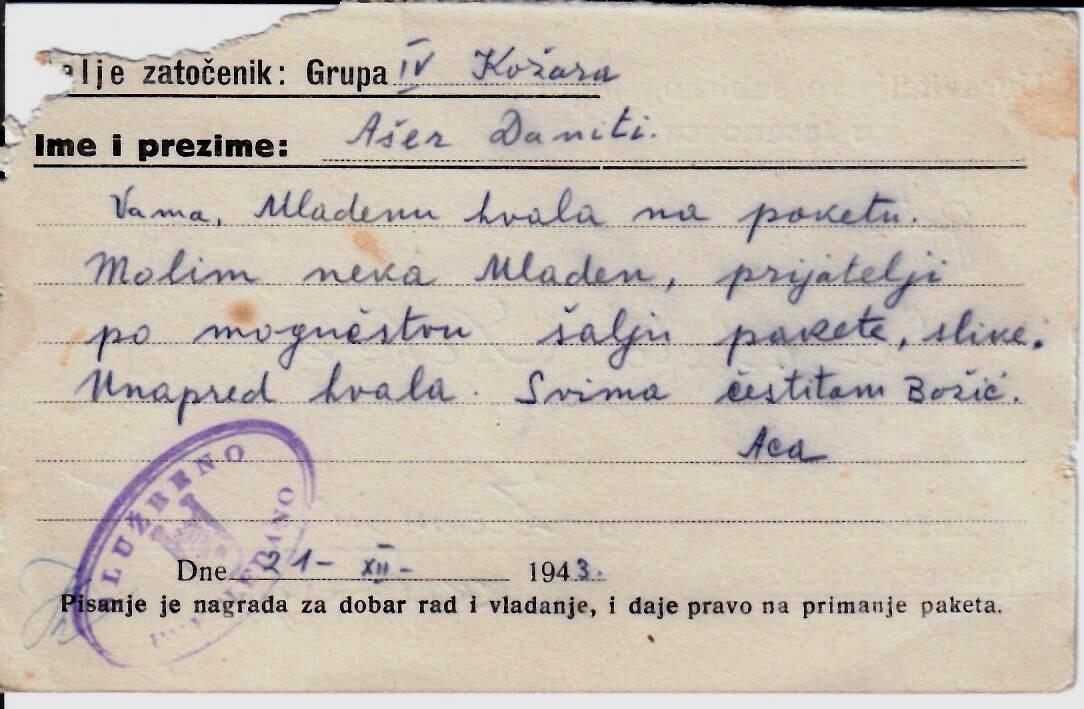 alje zatočenik: Grupa IV Kožara
Ime i prezime: Ašer Daniti.
Vama, Mladenu hvala na paketu.
Molim neka Mladen, prijatelji
po mogućstvu šalju pakete, slike.
Unapred hvala. Svima čestitam Božić.
Aca
SLUŽBENO
Dne 21- XII- 1943.
Pisanje je nagrada za dobar rad i vladanje, i daje pravo na primanje paketa.